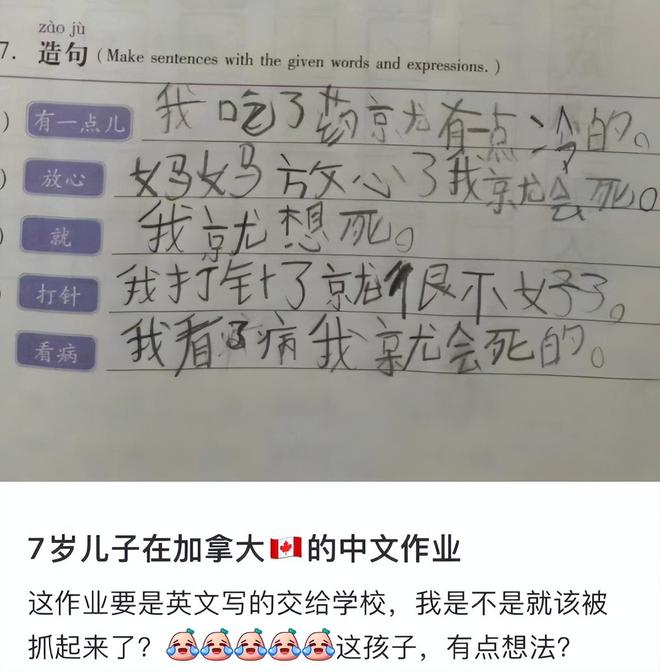 zào jù
7. 造句 (Make sentences with the given words and expressions.)
) 有一点儿 我吃了药就有一点冷的。
) 放心 妈妈放心了我就会死。
) 就 我就想死。
打针 我打针了就很不好了。
看病 我看了病我就会死的。
7岁儿子在加拿大🇨🇦的中文作业
这作业要是英文写的交给学校，我是不是就该被
抓起来了？😂😂😂😂😂这孩子，有点想法？